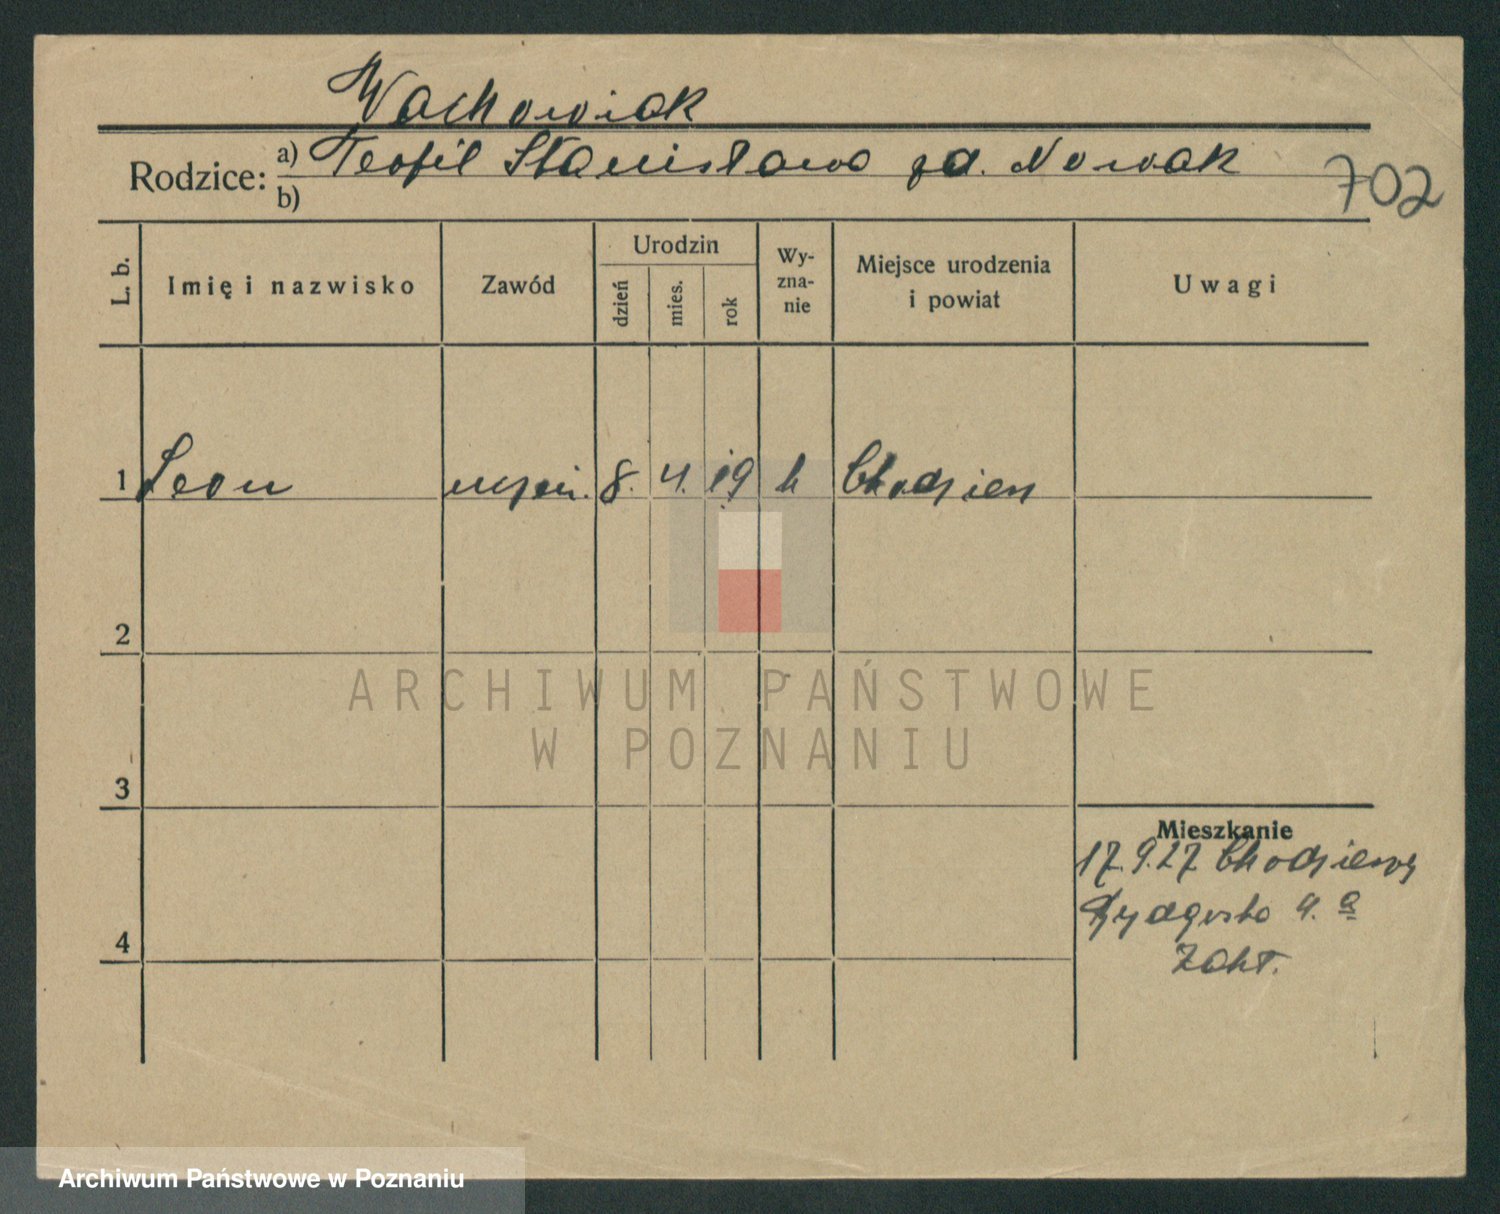 Wachowiak
Rodzice: a) Teofil Stanisława zd. Nowak
b)
702
L. b. Imię i nazwisko Zawód Urodzin dzień mies. rok Wy-zna-nie Miejsce urodzenia i powiat Uwagi
1 Leon uczeń. 8. 4. 19 k Chodzież
2
ARCHIWUM PAŃSTWOWE
W POZNANIU
3
Mieszkanie
17.9.27 Chodzieży
4
Zakł.
Archiwum Państwowe w Poznaniu